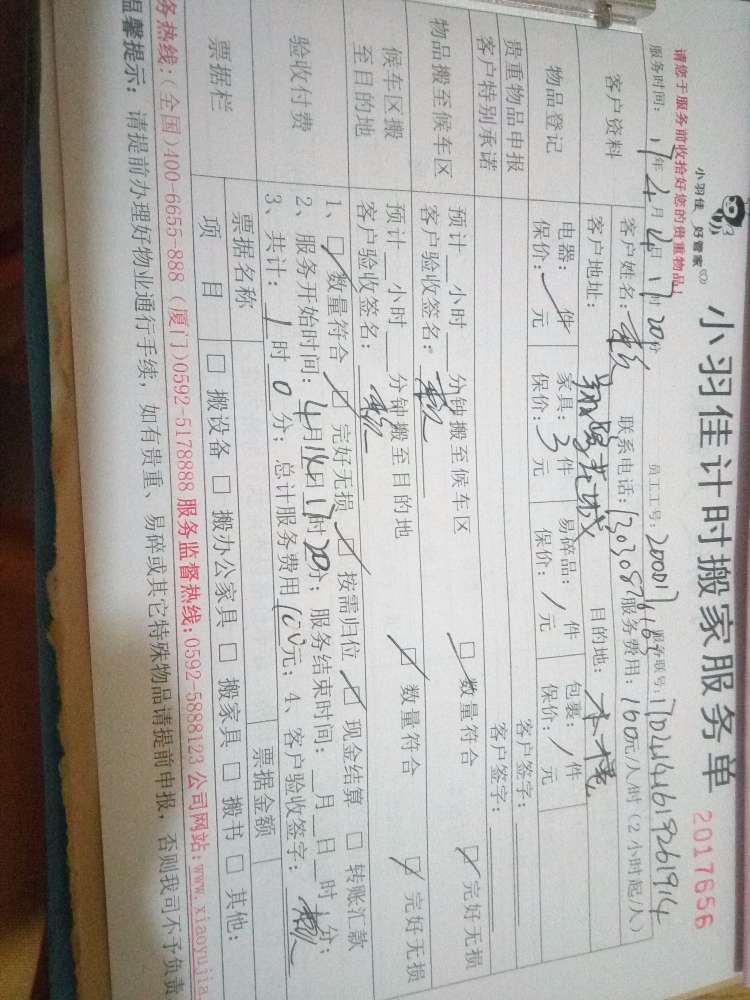 小羽佳 好管家
小羽佳计时搬家服务单 2017656
请您于服务前收拾好您的贵重物品！
服务时间：17年4月14日17时20分 员工工号：200017 服务联号：
客户资料 客户姓名： 联系电话： 服务费用：160元/人/时（2小时起/人）
客户地址： 目的地：
物品登记 电器：/件 家具：3件 易碎品：/件 包裹：/件
保价：元 保价：元 保价：/元 保价：/元
贵重物品申报 客户签字：
客户特别承诺 客户签字：
物品搬至候车区 预计__小时__分钟搬至候车区 □数量符合 □完好无损
客户验收签名：
候车区搬至目的地 预计__小时__分钟搬至目的地 □数量符合 □完好无损
客户验收签名：
验收付费 1、□数量符合 □完好无损 □按需归位 □现金结算 □转账汇款
2、服务开始时间：4月14日17时20分；服务结束时间：__月__日__时__分；
3、共计：1时0分；总计服务费用160元；4、客户验收签字：
票据栏 票据名称 票据金额
项目 □搬设备 □搬办公家具 □搬家具 □搬书 □其他：
务热线：（全国）400-6655-888（厦门）0592-5178888 服务监督热线：0592-5888123 公司网站：www.xiaoyujia
温馨提示：请提前办理好物业通行手续，如有贵重、易碎或其它特殊物品请提前申报，否则我司不予负责